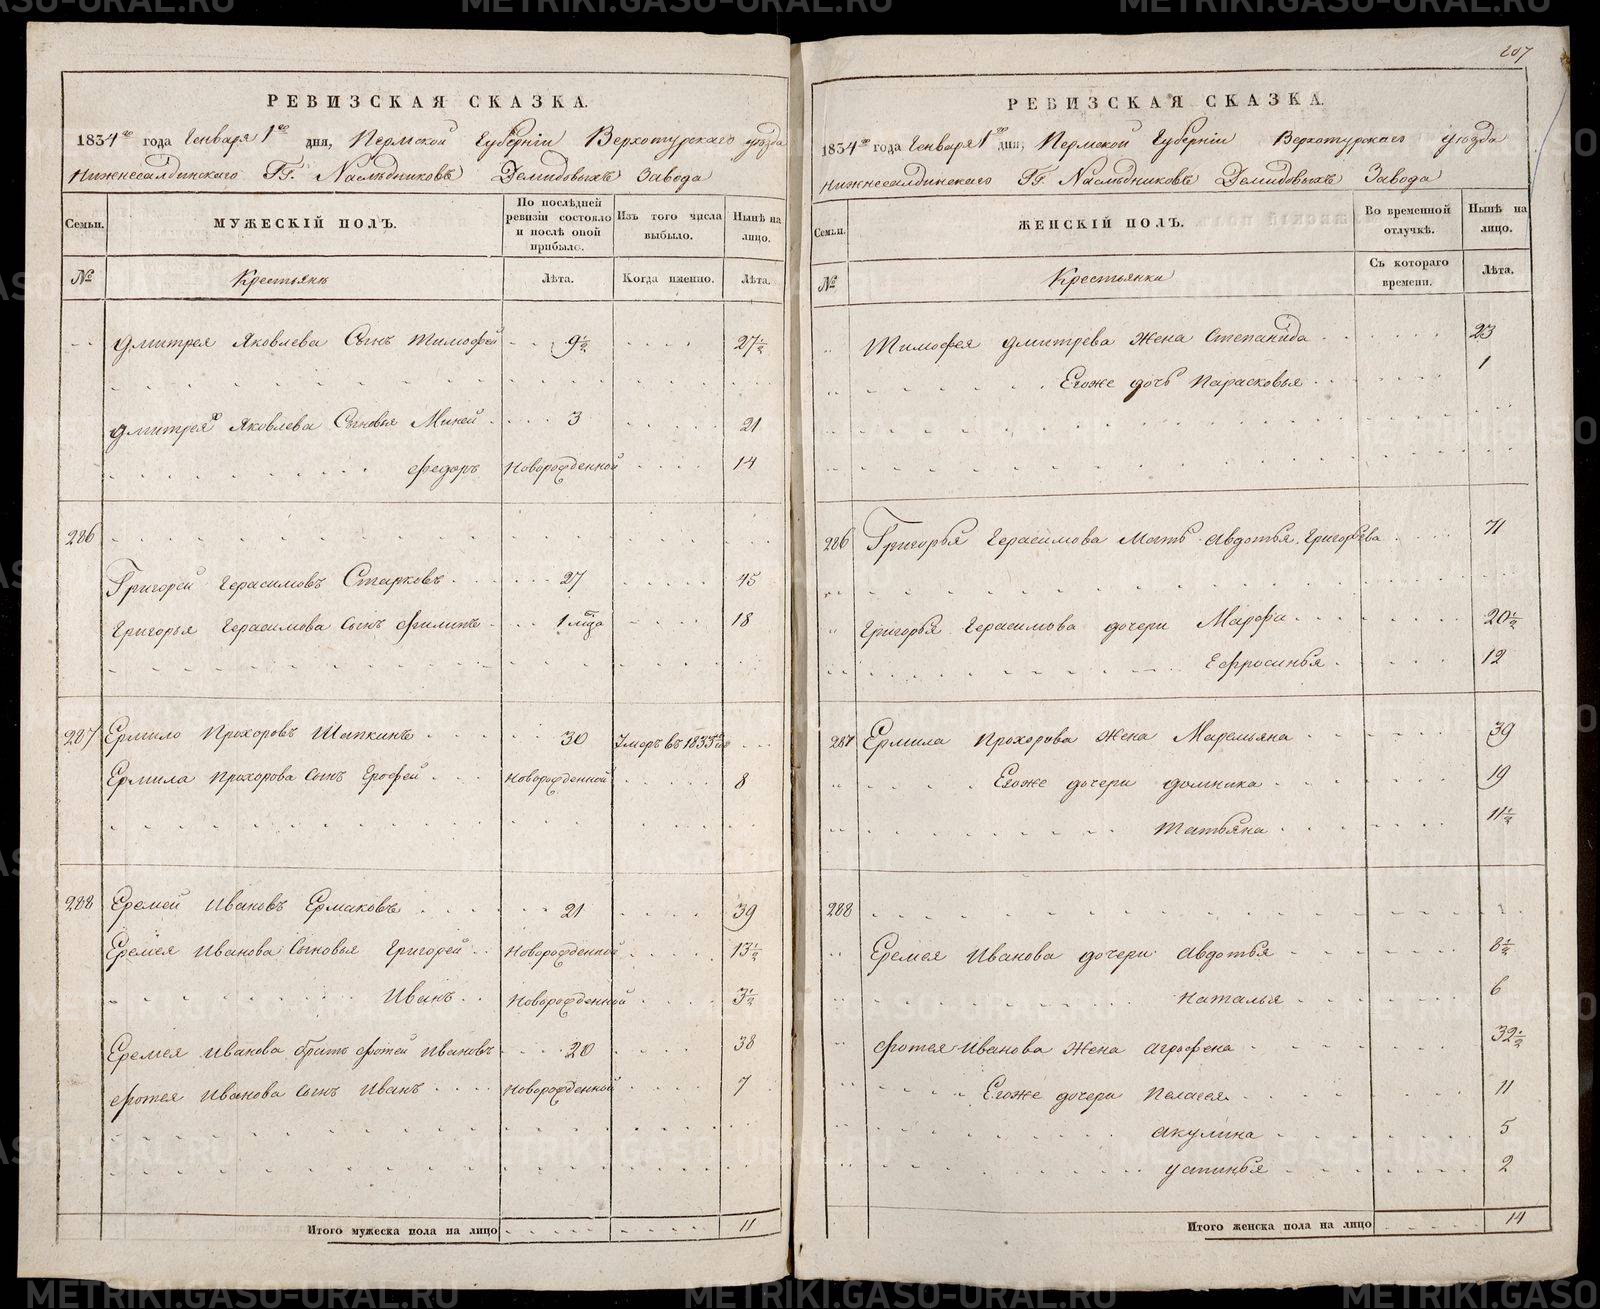 РЕВИЗСКАЯ СКАЗКА.
1834го года Генваря 1го дня, Пермской Губернiи Верхотурскаго уѣзда
Нижнесалдинскаго ГГ. Наслѣдниковъ Демидовыхъ Завода
Семьи. МУЖЕСКIЙ ПОЛЪ. По послѣдней ревизiи состояло и послѣ оной прибыло. Изъ того числа выбыло. Нынѣ на лицо.
№ Крестьянъ Лѣта. Когда именно. Лѣта.
Дмитрея Яковлева Сынъ Тимофей 9½ 27½
Дмитрея Яковлева Сыновья Миней 3 21
Федоръ Новорожденной 14
286
Григорей Герасимовъ Старковъ 27 45
Григорья Герасимова Сынъ Филипъ 1 мца 18
287 Ермило Прохоровъ Шапкинъ 30 Умеръ въ 1833
Ермила Прохорова Сынъ Ерофей Новорожденной 8
288 Еремей Ивановъ Ермаковъ 21 39
Еремея Иванова Сыновья Григорей Новорожденной 13½
Иванъ Новорожденной 3½
Еремея Иванова братъ Фотей Ивановъ 20 38
Фотея Иванова Сынъ Иванъ Новорожденной 7
Итого мужеска пола на лицо 11
207
РЕВИЗСКАЯ СКАЗКА.
1834го года Генваря 1го дня, Пермской Губернiи Верхотурскаго уѣзда
Нижнесалдинскаго ГГ. Наслѣдниковъ Демидовыхъ Завода
Семьи. ЖЕНСКIЙ ПОЛЪ. Во временной отлучкѣ. Нынѣ на лицо.
№ Крестьянки Съ котораго времени. Лѣта.
Тимофея Дмитрева жена Степанида 23
Егоже дочь Парасковья 1
286 Григорья Герасимова Мать Авдотья Григорьева 71
Григорья Герасимова дочери Марфа 20½
Ефросинья 12
287 Ермила Прохорова жена Маремьяна 39
Егоже дочери Домника 19
Татьяна 11½
288
Еремея Иванова дочери Авдотья 8½
Наталья 6
Фотея Иванова жена Агрофена 32½
Егоже дочери Пелагея 11
Акулина 5
Устинья 2
Итого женска пола на лицо 14
METRIKI.GASO-URAL.RU